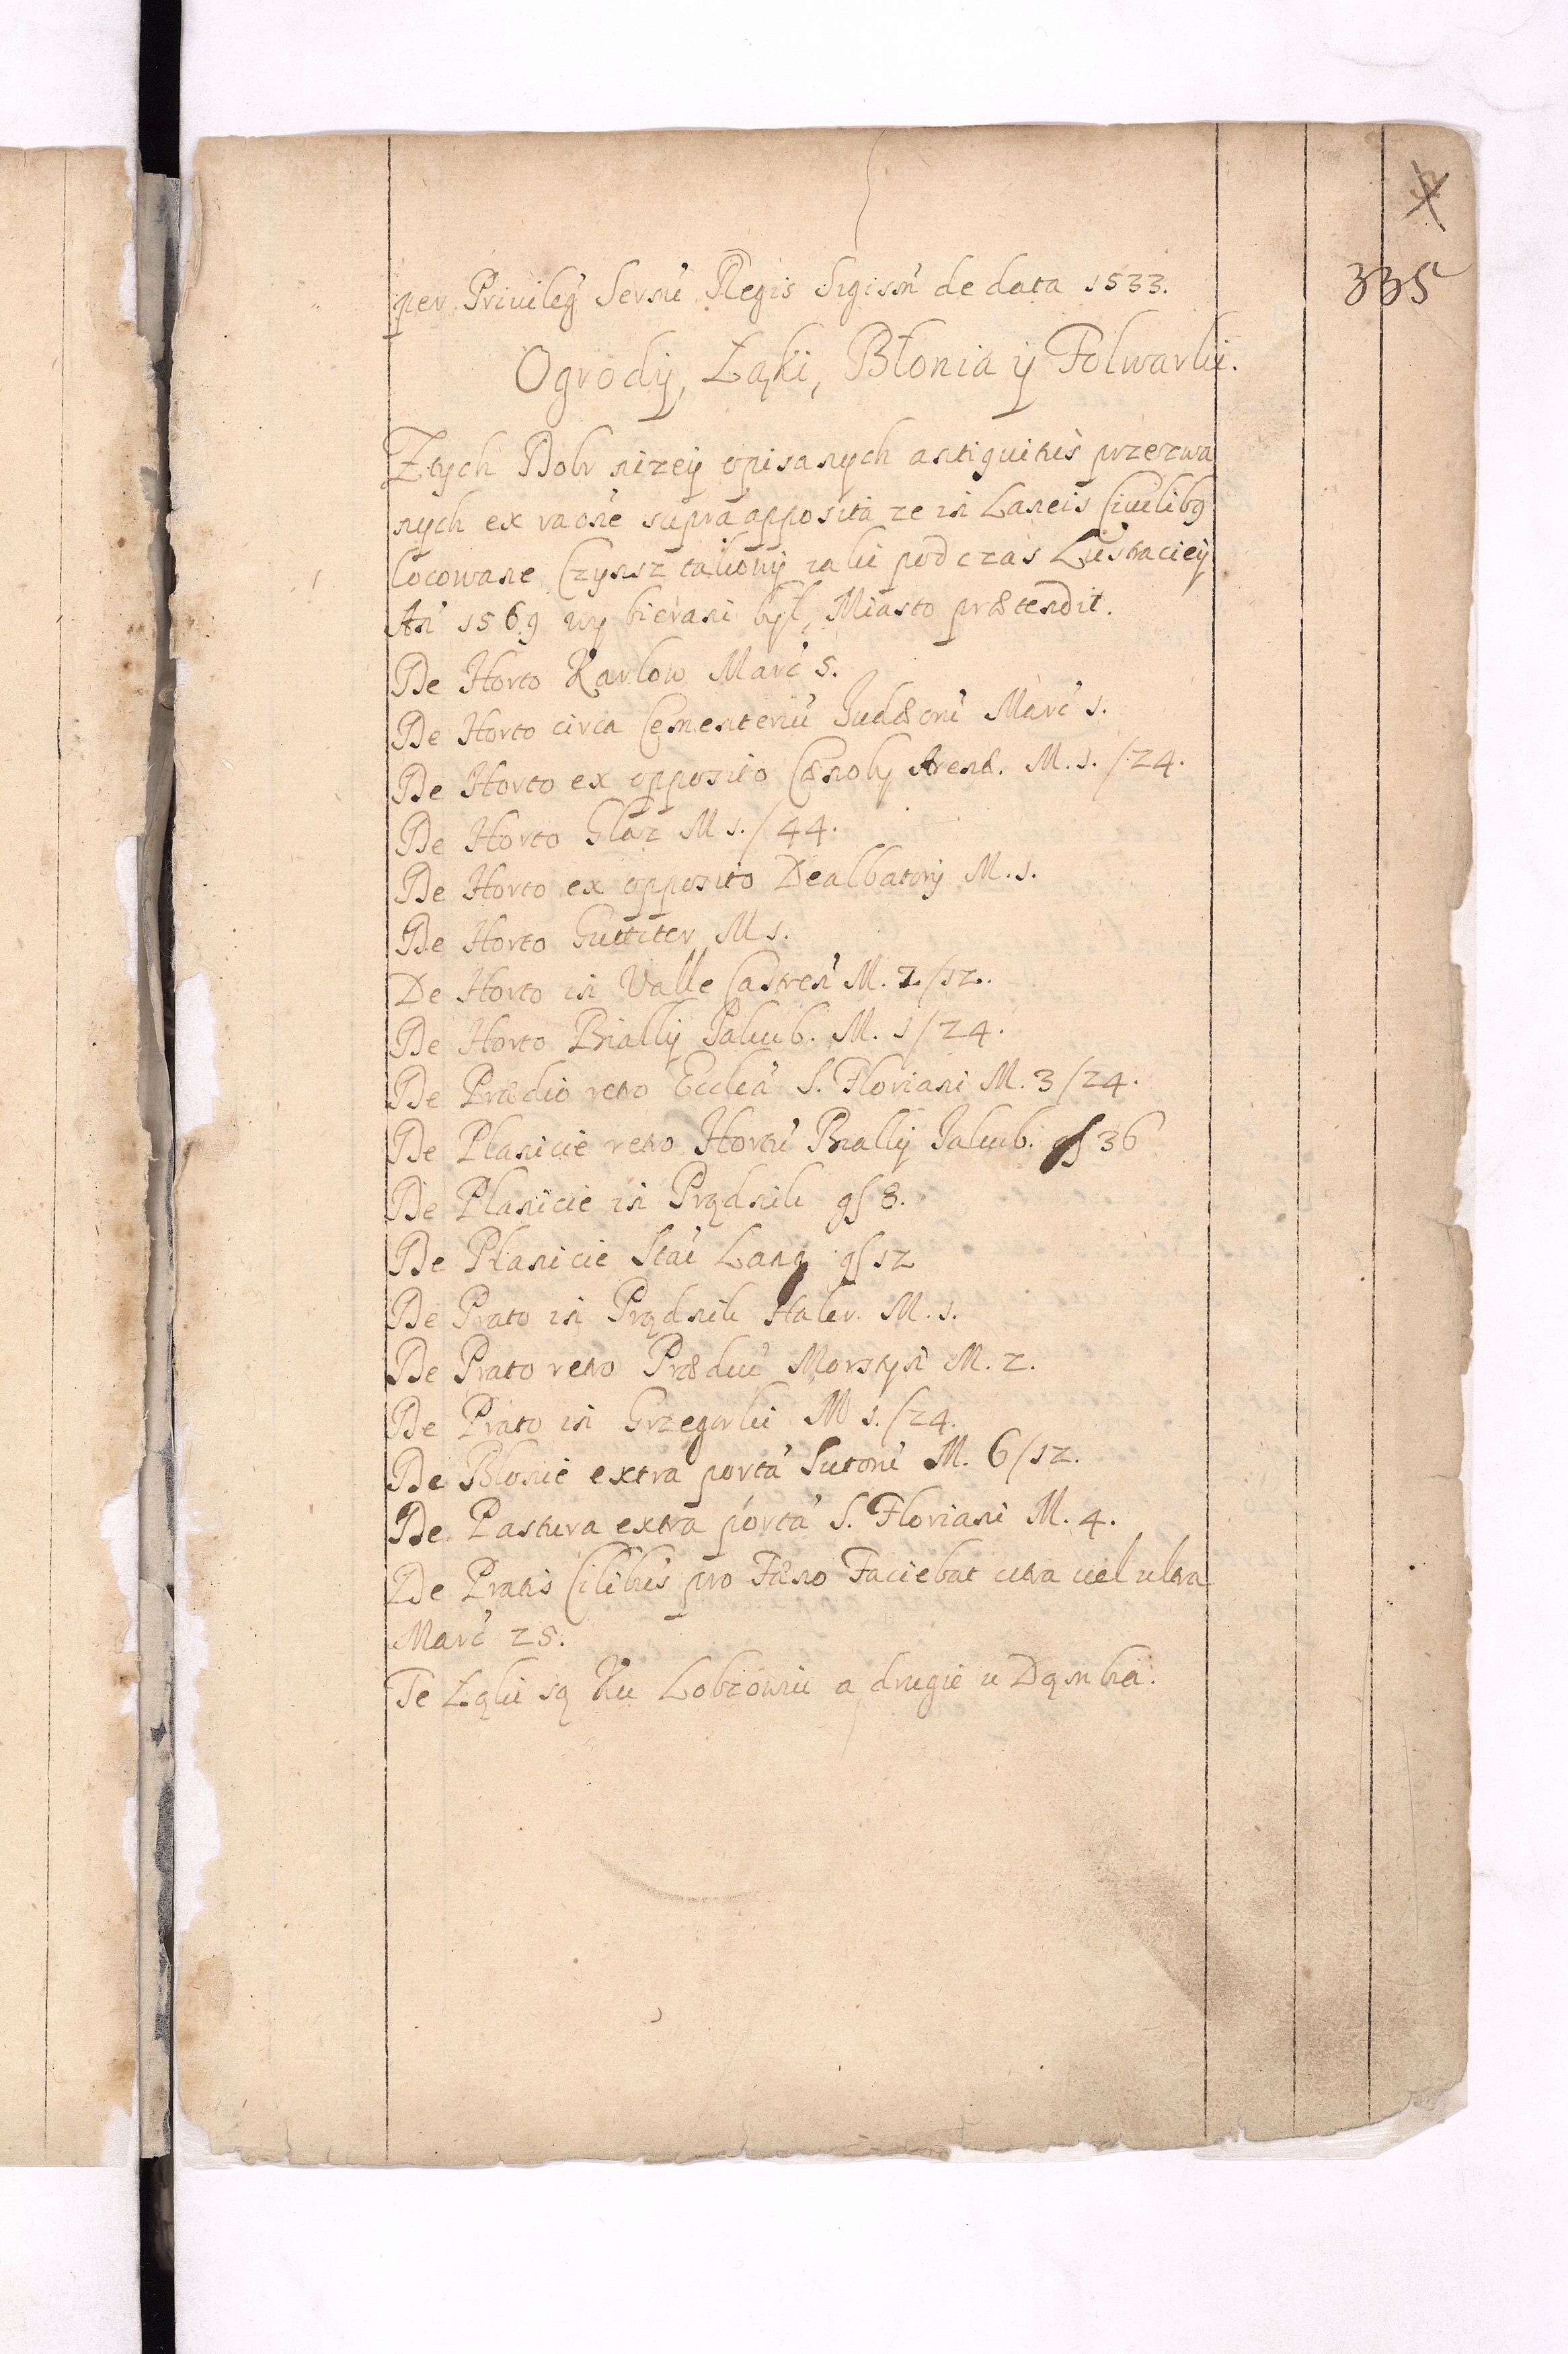 335
per Privileg̃ Serñu Regis Sigism̃ de data 1533.
Ogrody, Łąki, Błonia ÿ Folwarki.
Ztych Dobr nizeÿ opisanych antiquitùs przezwa
nych ex raõne supra apposita ze in Laneis Civilibꝫ
locowane Czynsz takowy iaki podczas Lustracieÿ
Añ 1569 wy bierani był, Miasto prætendit.
De Horto Karlow Marc̃ 5.
De Horto circa Cementeriũ Judæorũ Marc̃ 1.
De Horto ex opposito Cænobÿ Arenæ. M. 1. /24.
De Horto Glaz M 1. /44.
De Horto ex opposito Dealbatorÿ M. 1.
De Horto Gutteter M 1.
De Horto in Valle Castreñ M. 2/12.
De Horto Biallÿ Jakub. M. 1/24.
De Prædio retro Eccleã S. Floriani M. 3/24.
De Planicie retro Hortũ Biallÿ Jakub. gſ 36
De Planicie in Prądnik gſ 8.
De Planicie Staĩ Lang gſ 12
De Prato in Prądnik Haler. M. 1.
De Prato retro Prædiũ Morstyñ M. 2.
De Prato in Grzegorki M 1. /24.
De Błonie extra portã Sutorũ M. 6/12.
De Pastura extra portã S. Floriani M. 4.
De Pratis Cilibus pro Fæno Faciebat citra vel ultra
Marc̃ 25.
Te Łąki są Ku Lobzowiu a drugie u Dąmbia.